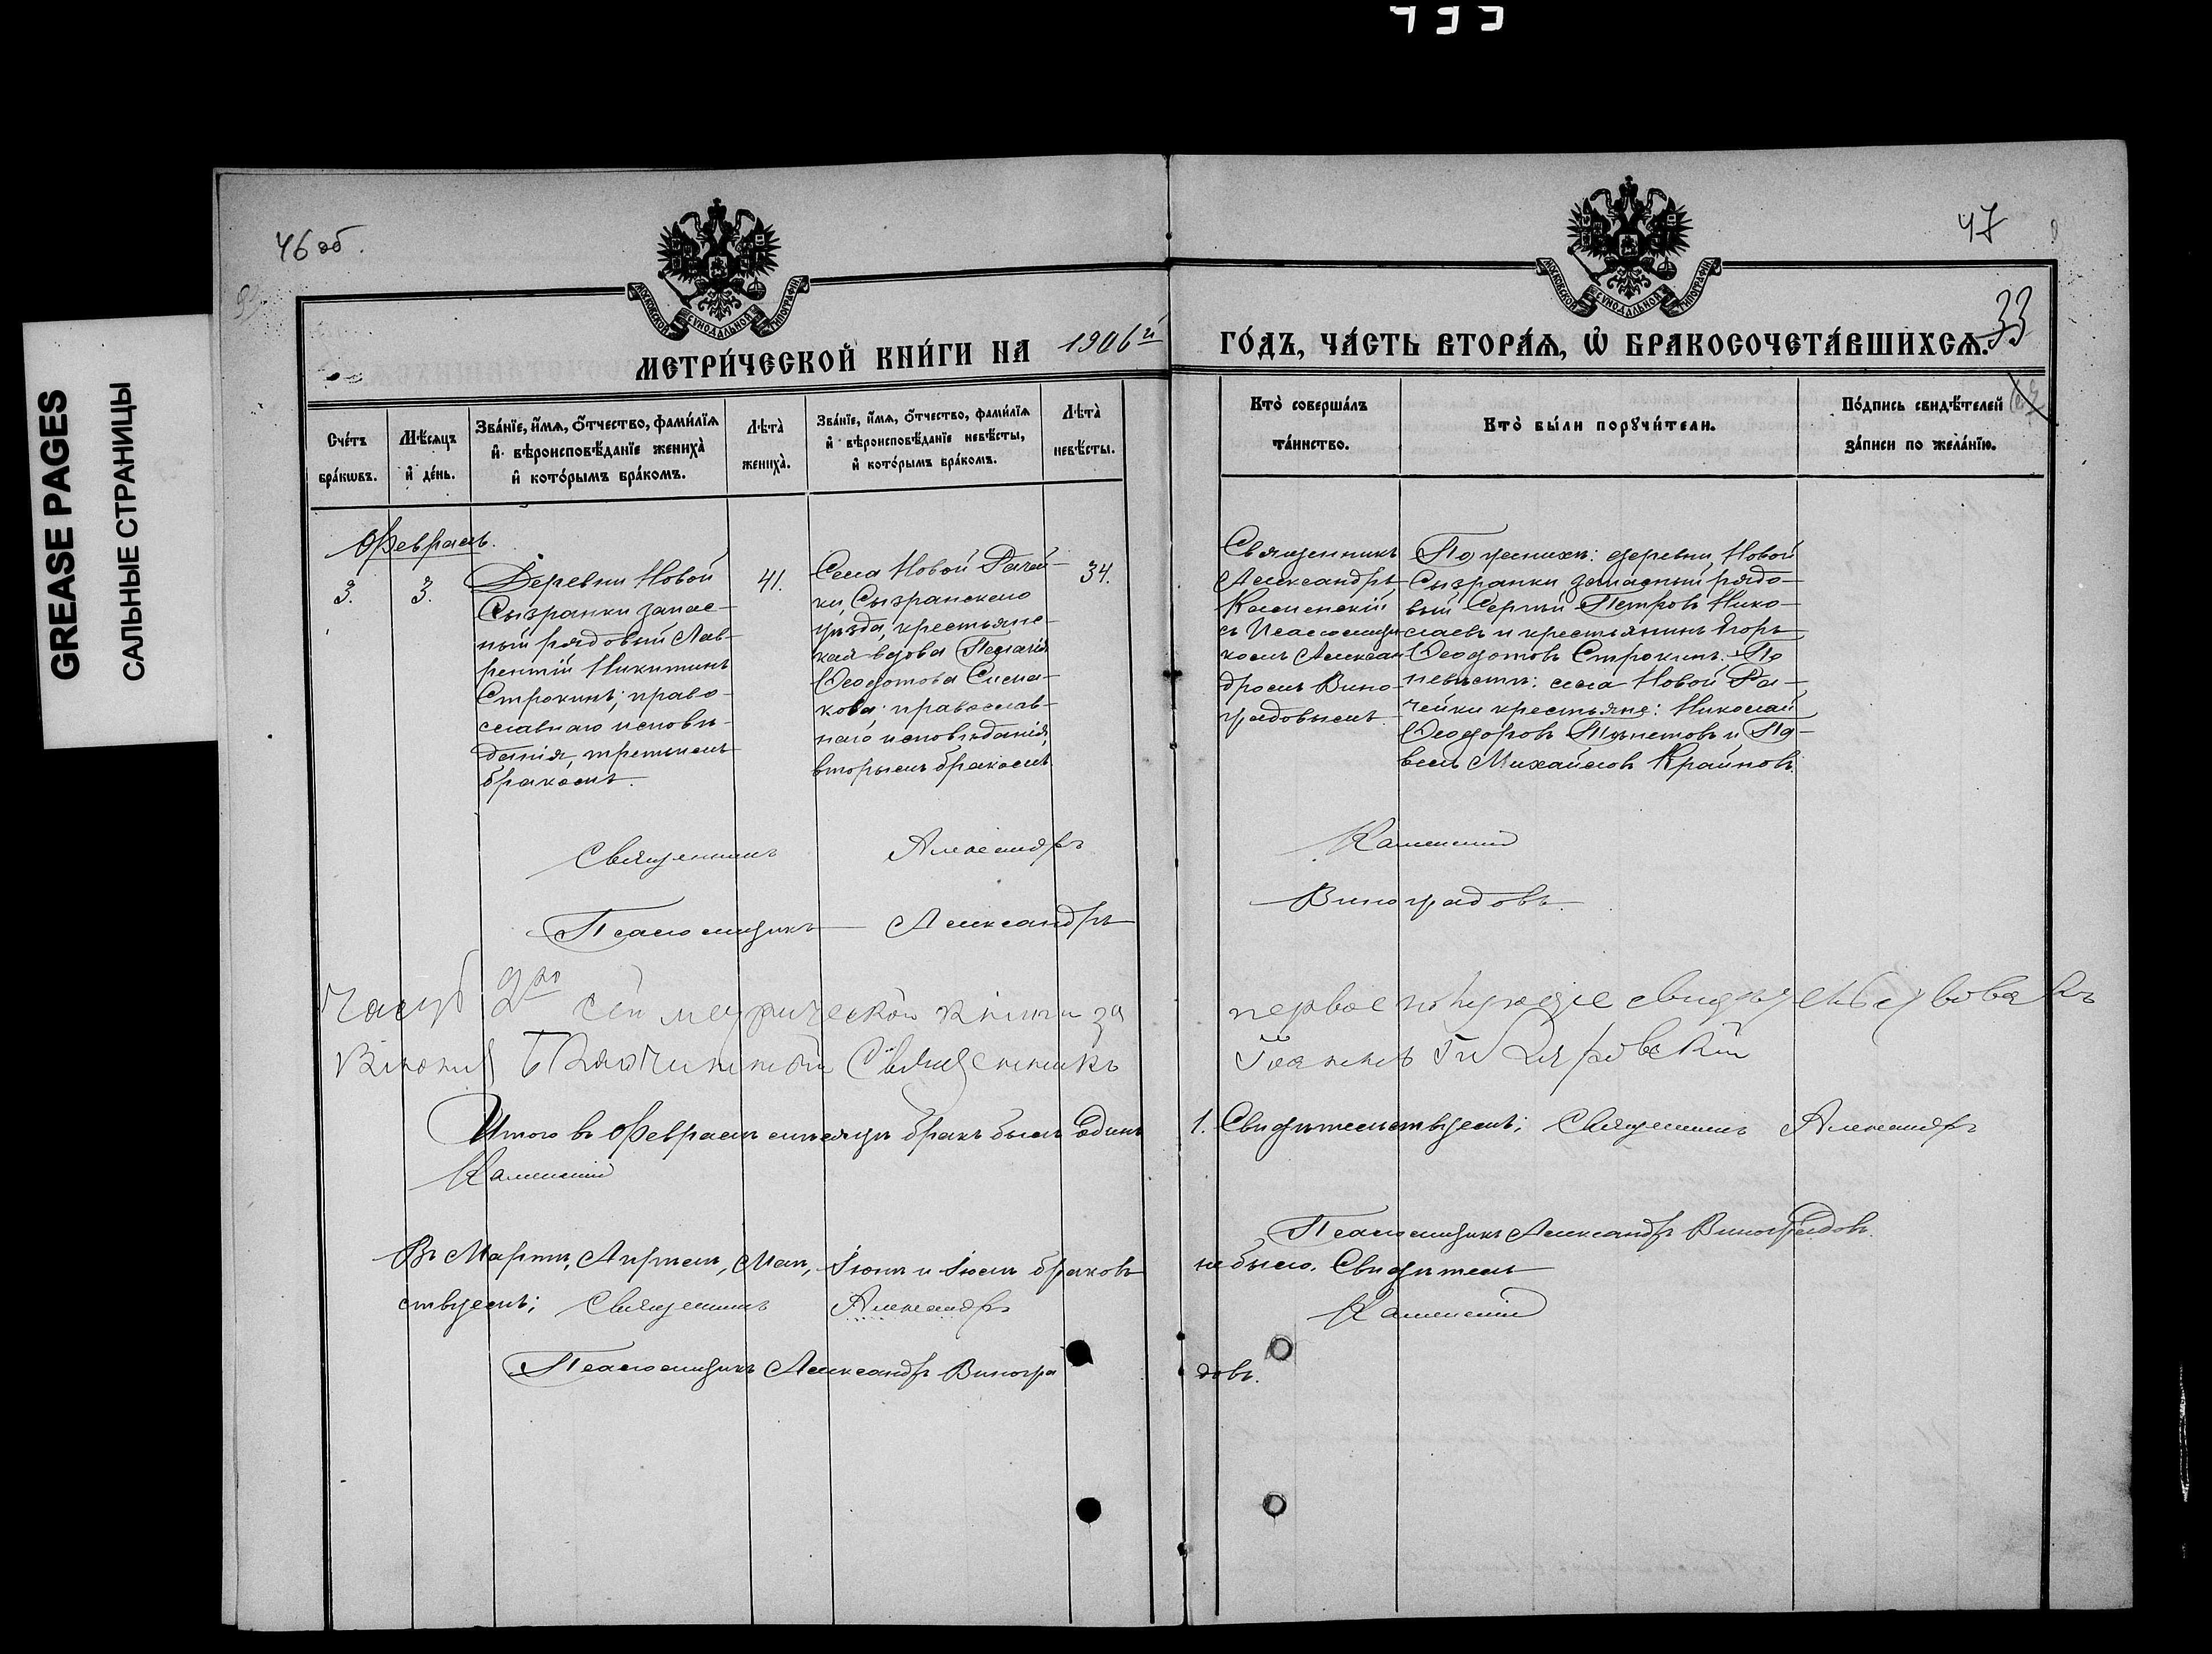 433
GREASE PAGES
САЛЬНЫЕ СТРАНИЦЫ
46 об.
47
33
МОСКОВСКОЙ СУНОДАЛЬНОЙ ТИПОГРАФІИ
МОСКОВСКОЙ СУНОДАЛЬНОЙ ТИПОГРАФІИ
МЕТРИ́ЧЕСКОЙ КНИ́ГИ НА 1906й ГО́ДЪ, ЧА́СТЬ ВТОРА́Ѧ, Ѡ҆ БРАКОСОЧЕТА́ВШИХСѦ.
Сче́тъ бра́кѡвъ.
Мѣ́сѧцъ и҆ де́нь.
Зва́нїе, и҆́мѧ, ѻ҆́тчество, фами́лїѧ
и҆ вѣроисповѣ́данїе жениха̀
и҆ кото́рымъ бра́комъ.
Лѣта̀ жениха̀.
Зва́нїе, и҆́мѧ, ѻ҆́тчество, фами́лїѧ
и҆ вѣроисповѣ́данїе невѣ́сты,
и҆ кото́рымъ бра́комъ.
Лѣта̀ невѣ́сты.
Кто̀ соверша́лъ
та́инство.
Кто̀ бы́ли порꙋчи́тели.
По́дпись свидѣ́телей
за́писи по жела́нїю.
Февраль.
3.
3.
Деревни Новой
Сызранки запас-
ный рядовый Лав-
рентій Никитинъ
Строкинъ; право-
славнаго исповѣ-
данія, третьимъ
бракомъ.
41.
Села Новой Рачей-
ки, Сызранскаго
уѣзда, крестьянс-
кая вдова Пелагія
Ѳеодотова Симa-
кова православ-
наго исповѣданія,
вторымъ бракомъ.
34.
Священникъ
Александръ
Каменскій
съ Псаломщи-
комъ Алексан-
дромъ Вино-
градовымъ.
По женихѣ: деревни Новой
Сызранки запасный рядо-
вый Сергѣй Петровъ Нико-
лаевъ и крестьянинъ Егоръ
Ѳеодотовъ Строкинъ. По
невѣстѣ: села Новой Ра-
чейки крестьяне: Николай
Ѳеодоровъ и Па-
велъ Михайловъ Крайновъ.
Священникъ Александръ Каменскій
Псаломщикъ Александръ Виноградовъ.
Часть 2ю сей метрической книги за первое полугодіе свидѣтельствовалъ
Благочинный Священникъ Іоаннъ
Итого въ Февралѣ мѣсяцѣ бракъ былъ Одинъ 1. Свидѣтельствуемъ; Священникъ Александръ
Каменскій
Псаломщикъ Александръ Виноградовъ.
Въ Мартѣ, Апрѣлѣ, Маѣ, Іюнѣ и Іюлѣ браковъ не было. Свидѣтель-
ствуемъ; Священникъ Александръ Каменскій
Псаломщикъ Александръ Виноградовъ.